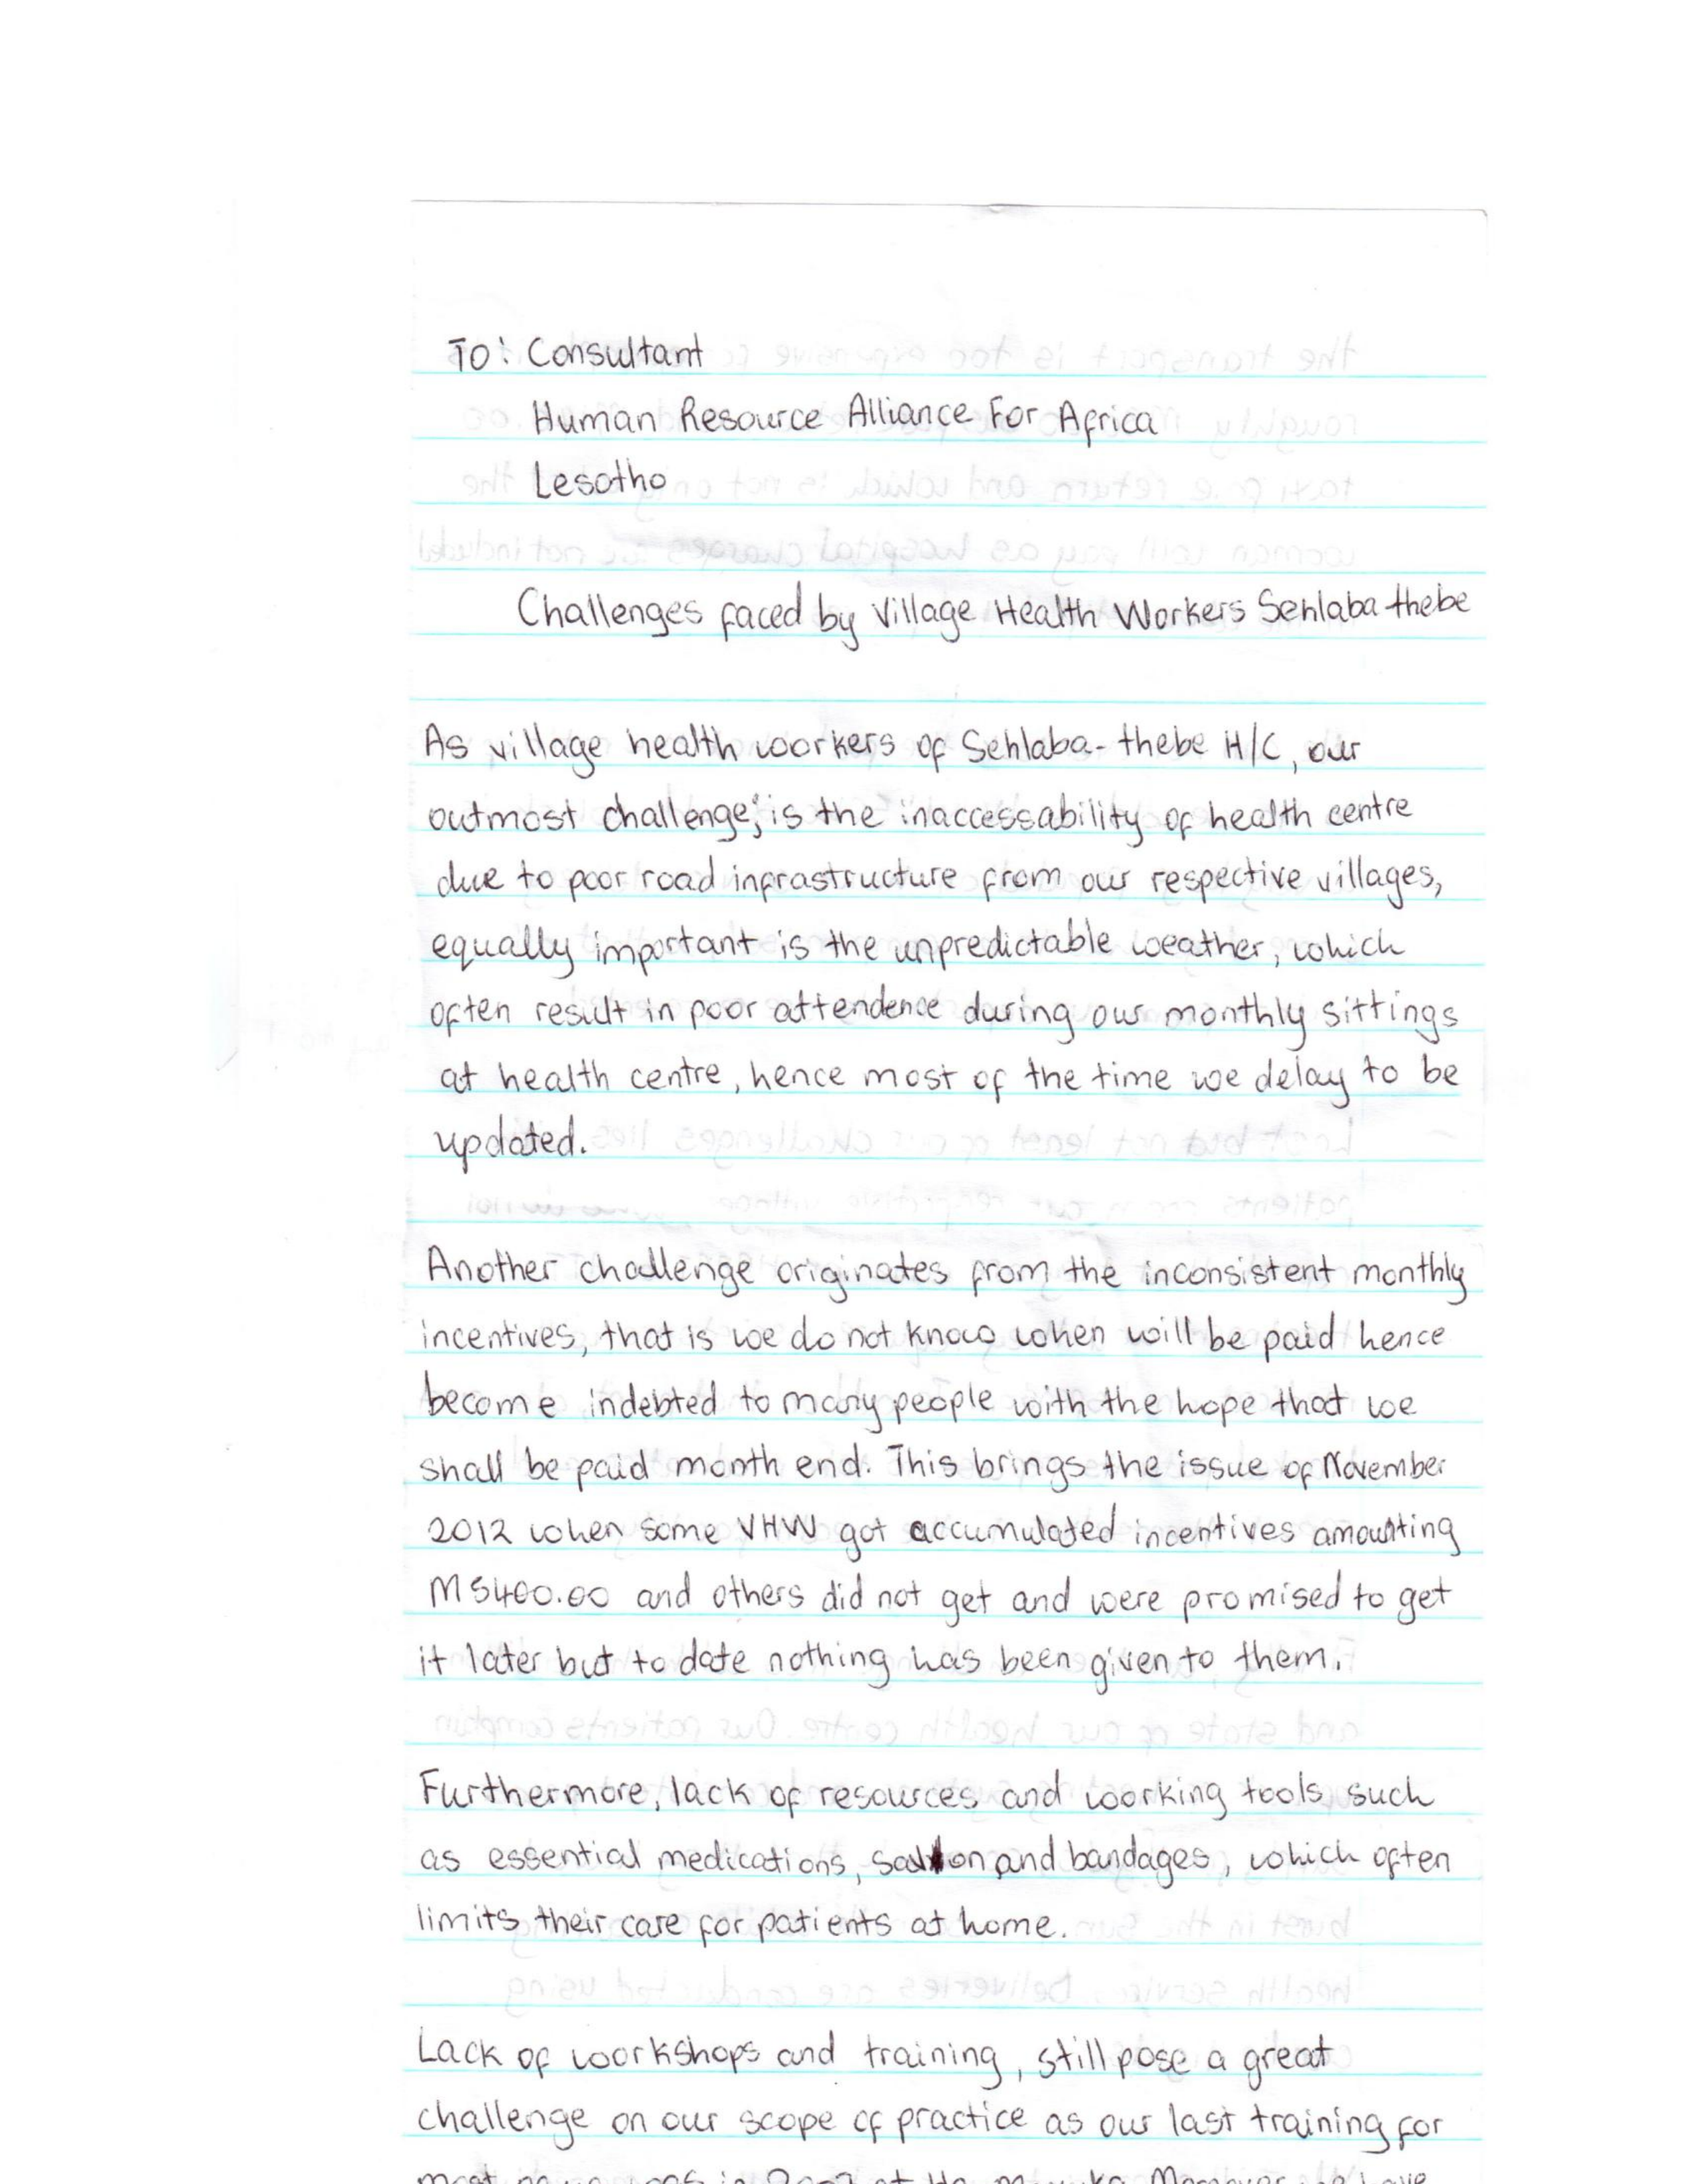 To: Consultant
Human Resource Alliance For Africa
Lesotho
Challenges faced by Village Health Workers Sehlaba thebe
As village health workers of Sehlaba-thebe H/C, our
outmost challenge; is the inaccessability of health centre
due to poor road infrastructure from our respective villages,
equally important is the unpredictable weather, which
often result in poor attendence during our monthly sittings
at health centre, hence most of the time we delay to be
updated.
Another challenge originates from the inconsistent monthly
incentives, that is we do not know when will be paid hence
become indebted to many people with the hope that we
shall be paid month end. This brings the issue of November
2012 when some VHW got accumulated incentives amounting
M5400.00 and others did not get and were promised to get
it later but to date nothing has been given to them.
Furthermore, lack of resources and working tools such
as essential medications, and bandages, which often
limits their care for patients at home.
Lack of workshops and training, still pose a great
challenge on our scope of practice as our last training for